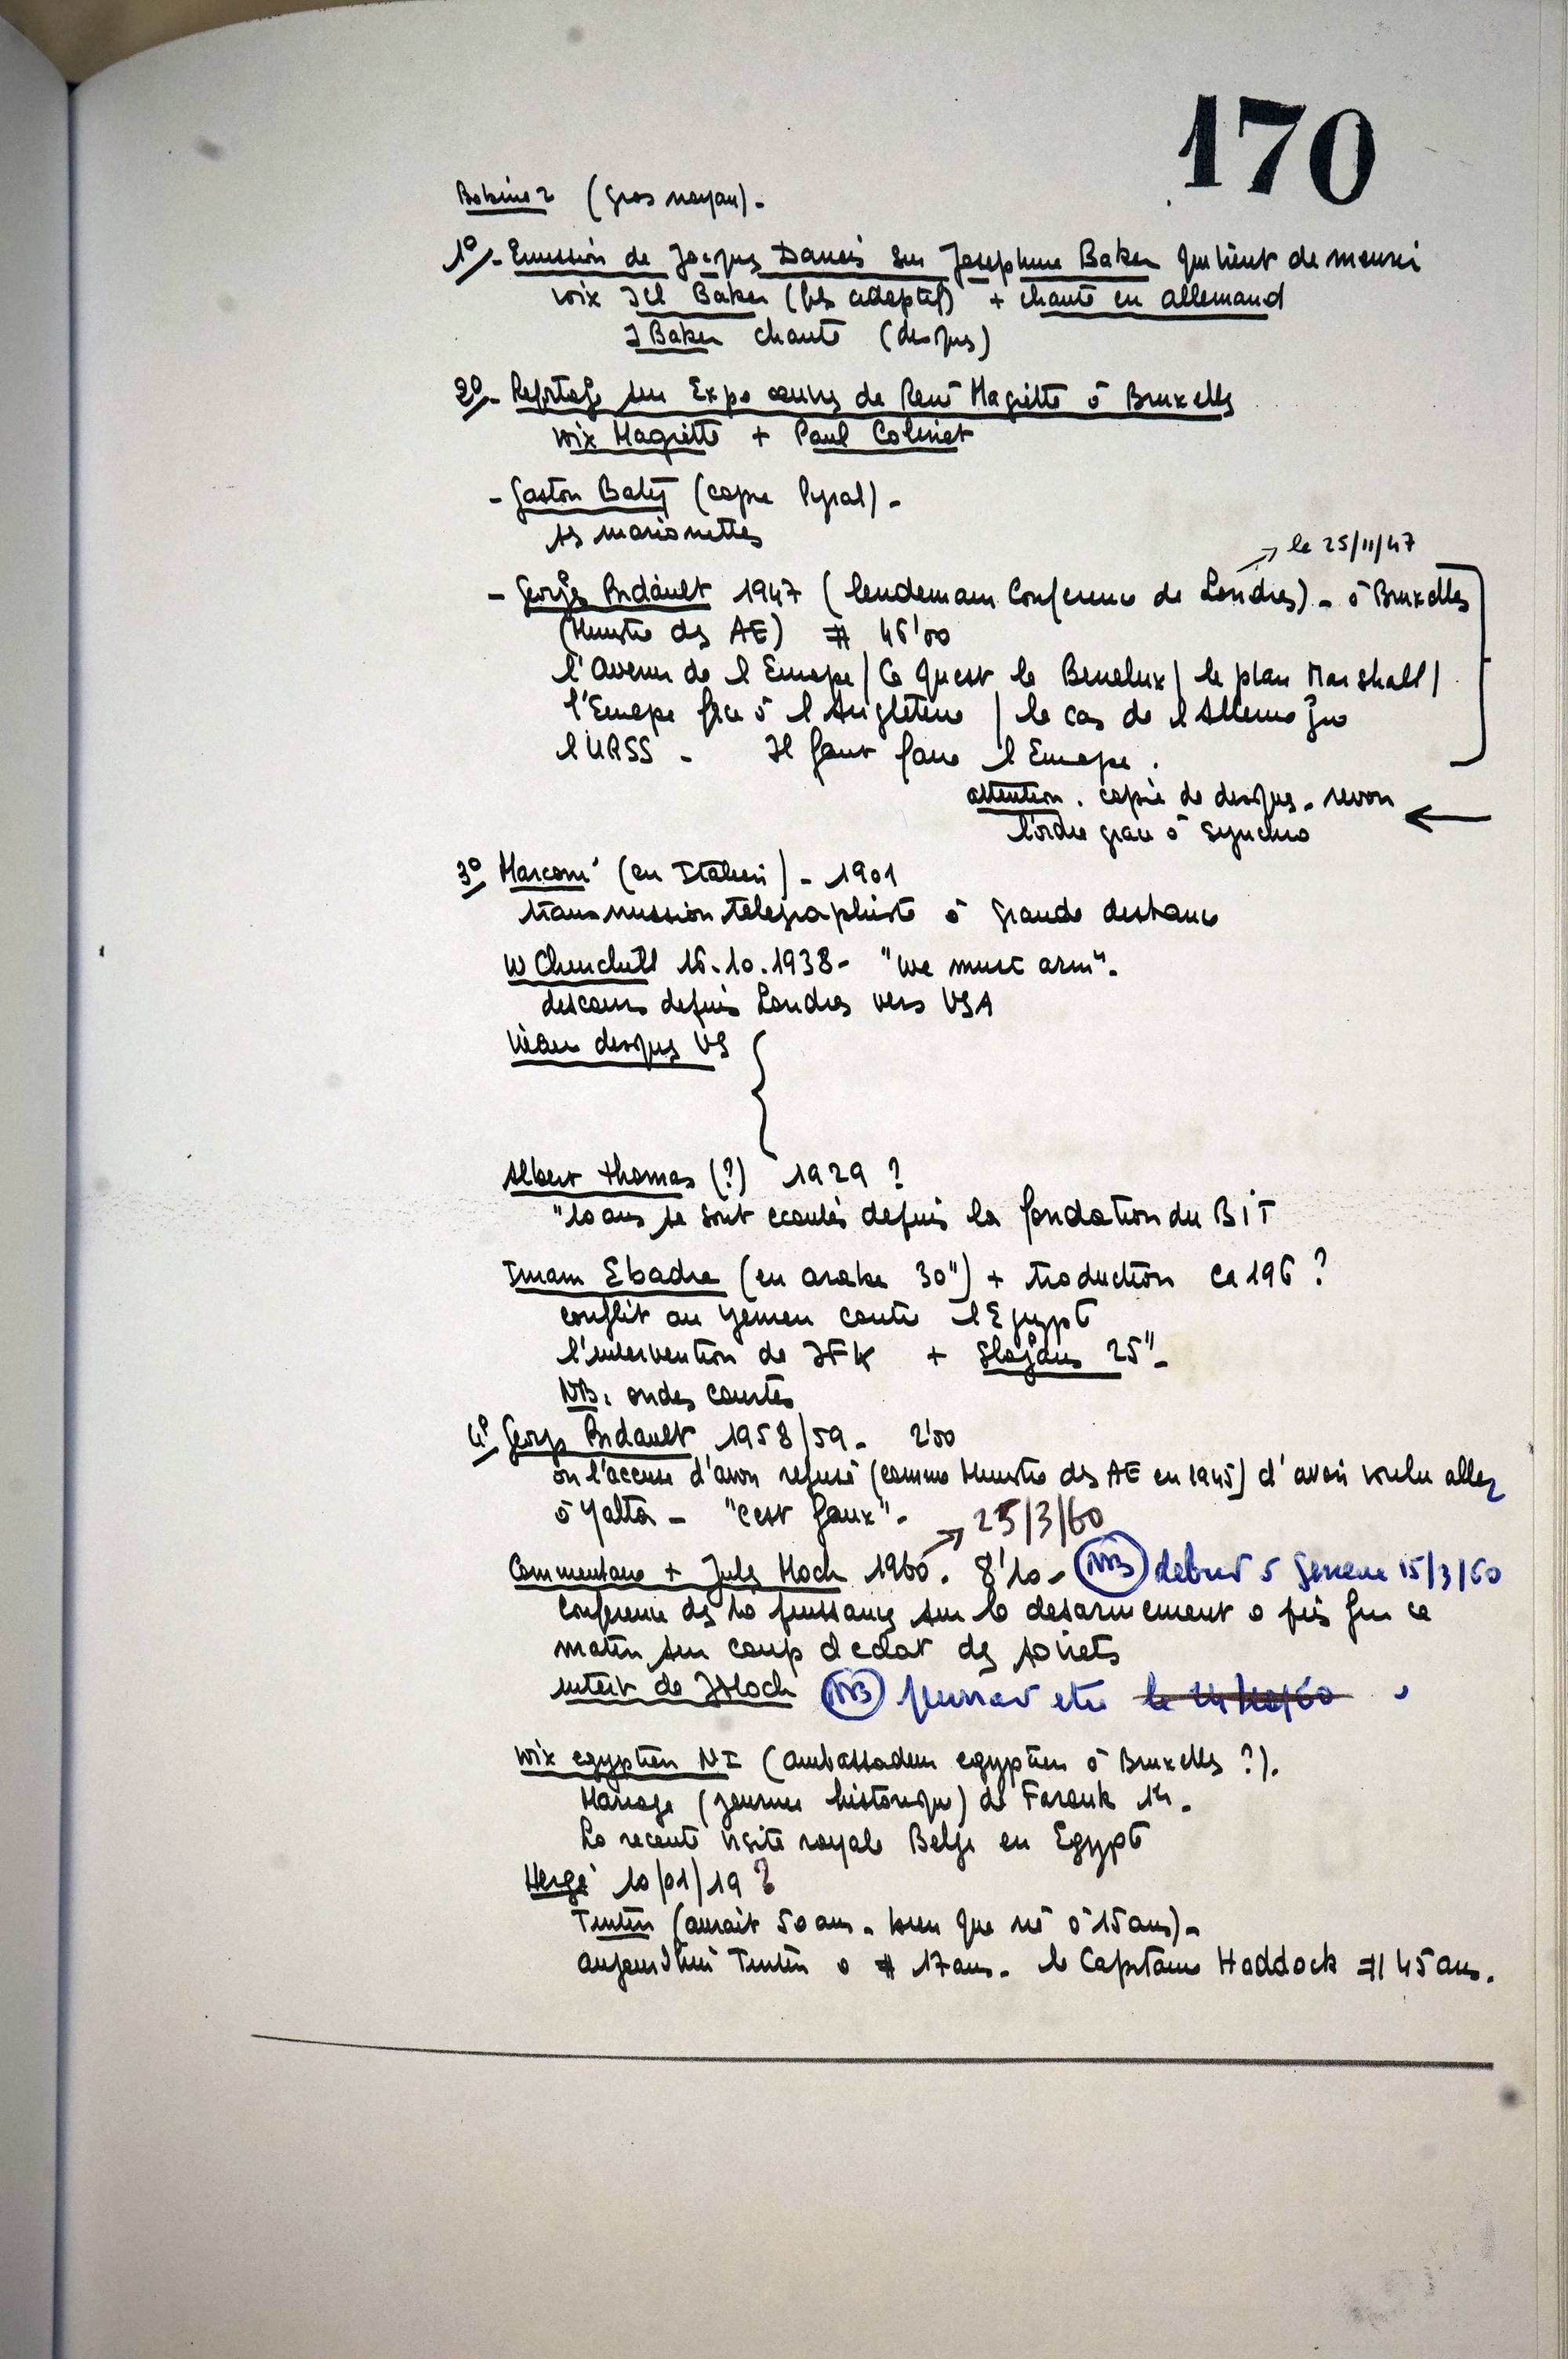 170
Bobine 2 (gros noyau).
1°/- Emission de Jacques Danois sur Josephine Baker qui vient de mourir
voix Bakes (fils adoptif) + chante en allemand
J Baker chante (disques)
2°/- Reportage sur Expo œuvres de René Magritte à Bruxelles
voix Magritte + Paul Colinet
- Gaston Baty (copie Pyral) -
ses marionnettes
→ le 25/11/47
- Georges Bidault 1947 (lendemain Conference de Londres) - à Bruxelles
(Ministre des AE) # 46'00
l'avenir de l'Europe / Ce qu'est le Benelux / le plan Marshall /
l'Europe face à l'Angleterre / le cas de l'Allemagne
l'URSS - Il faut faire l'Europe.
attention. copie de disques. revoir ←
l'ordre grace à synchro
3° Marconi (en Italien) - 1901
transmission télégraphiste à grande distance
W Churchill 16.10.1938 - "we must arm".
discours depuis Londres vers USA
disques US {
Albert Thomas (?) 1929 ?
"10 ans se sont écoulés depuis la fondation du BIT
Imam Ebadra (en arabe 30") + traduction ca 196 ?
conflit au Yemen contre l'Egypte
l'intervention de JFK + Slogans 25"-
NB: ondes courtes
4° Georges Bidault 1958/59 - 2'00
on l'accuse d'avoir refusé (comme Ministre des AE en 1945) d'avoir voulu aller
à Yalta - "c'est faux".
→ 25/3/60
Commentaire + Jules Moch 1960. 8'10 - NB debut à Geneve 15/3/60
Conference des 10 puissances sur le désarmement a pris fin ce
matin sur coup d'eclat des soviets
interv de J Moch NB pourrait etre le 24/10/60
voix egyptien NI (ambassadeur egyptien à Bruxelles ?).
Mariage (journée historique) de Farouk 1er.
La recente visite royale Belge en Egypte
Hergé 10/01/19 ?
Tintin (aurait 50 ans - bien que né à 15 ans) -
aujourd'hui Tintin a # 17 ans. le Capitaine Haddock # 45 ans.